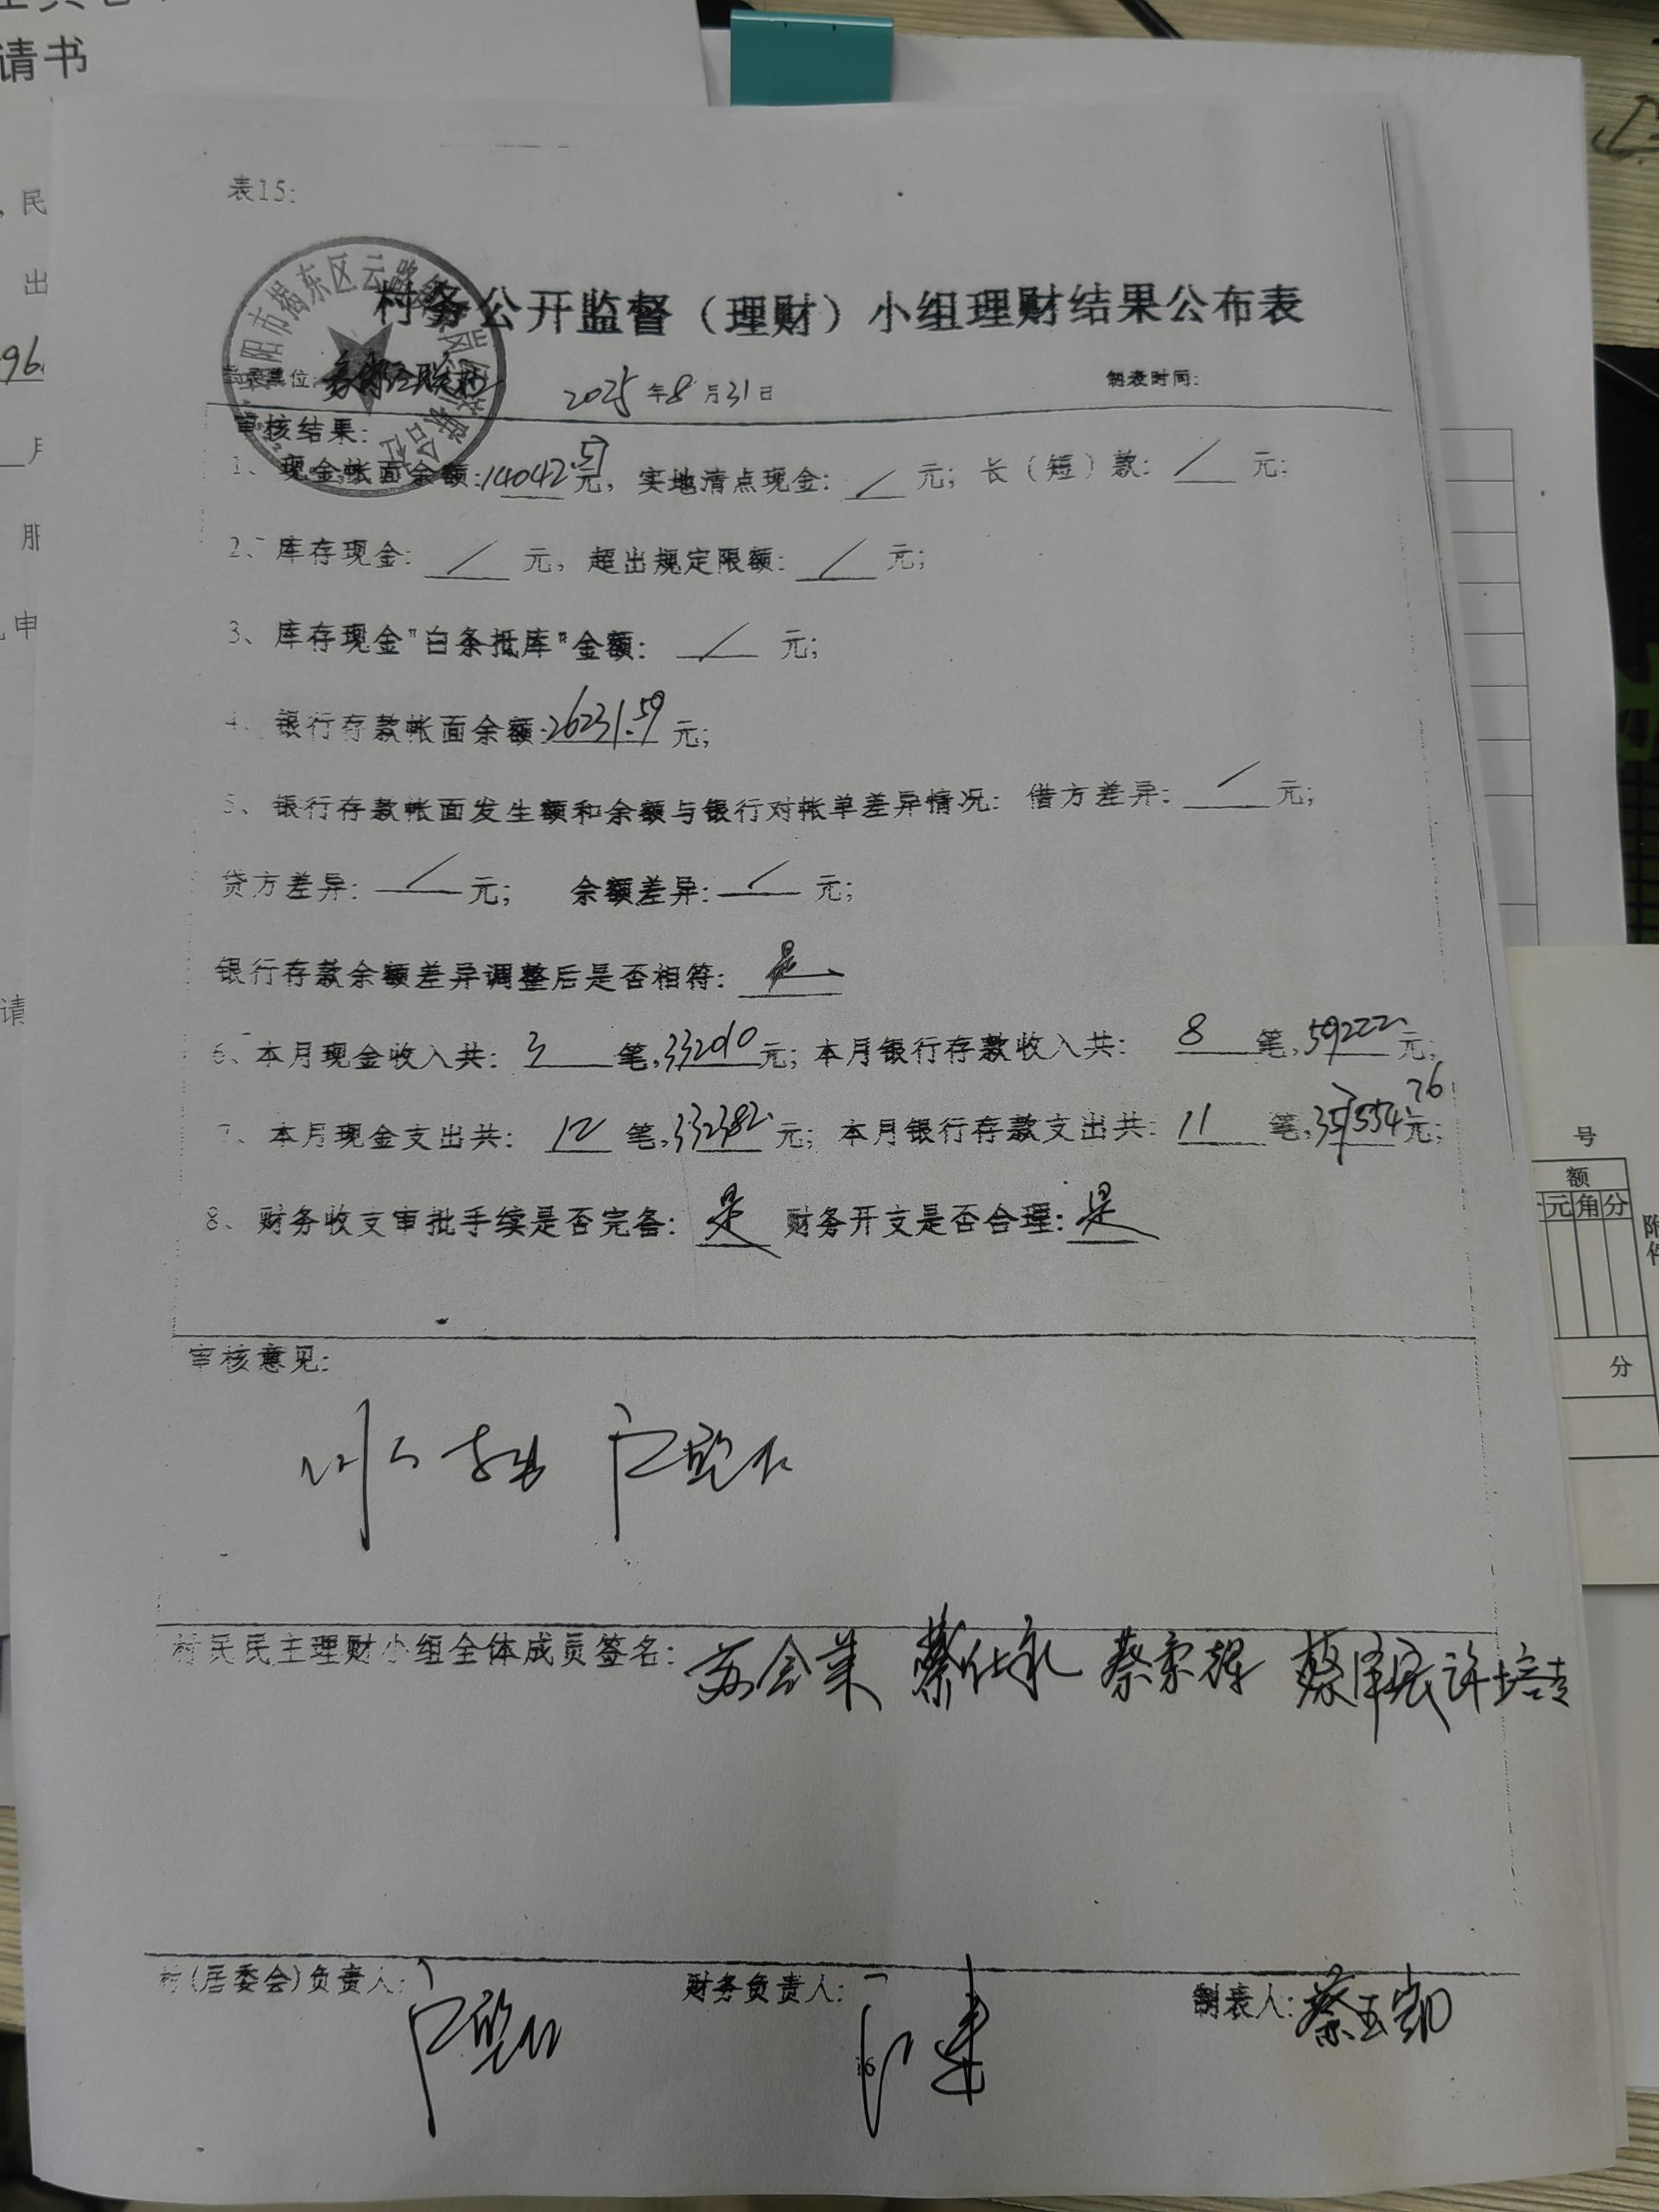 请书
表15:
村务公开监督（理财）小组理财结果公布表
2025年8月31日 制表时间:
审核结果:
1、现金帐面余额:14042元，实地清点现金: / 元；长（短）款: / 元；
2、库存现金: / 元，超出规定限额: / 元；
3、库存现金"白条抵库"金额: / 元；
4、银行存款帐面余额:26231.59元；
5、银行存款帐面发生额和余额与银行对帐单差异情况：借方差异: / 元；
贷方差异: / 元； 余额差异: / 元；
银行存款余额差异调整后是否相符: 是
6、本月现金收入共: 3 笔,332010元；本月银行存款收入共: 8 笔,59222元；
7、本月现金支出共: 12 笔,332382元；本月银行存款支出共: 11 笔,357554.76元；
8、财务收支审批手续是否完备: 是 财务开支是否合理: 是
审核意见:
村民民主理财小组全体成员签名: 苏会菜 蔡仕永 蔡宋辉 蔡泽民 许培
村(居委会)负责人: 财务负责人: 制表人: 蔡玉凯
16
号
额
元 角 分
附件
分